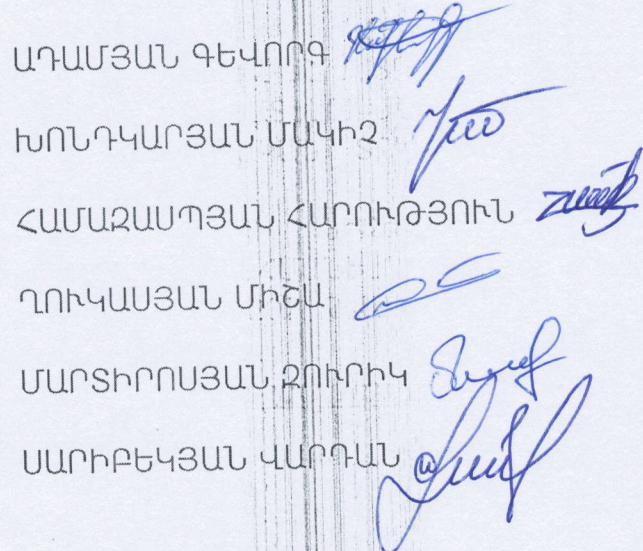 ԱԴԱՄՅԱՆ ԳԵՎՈՐԳ
ԽՈՆԴԿԱՐՅԱՆ ՄԱԿԻՉ
ՀԱՄԱԶԱՍՊՅԱՆ ՀԱՐՈՒԹՅՈՒՆ
ՂՈՒԿԱՍՅԱՆ ՄԻՇԱ
ՄԱՐՏԻՐՈՍՅԱՆ ԶՈՒՐԻԿ
ՍԱՐԻԲԵԿՅԱՆ ՎԱՐԴԱՆ